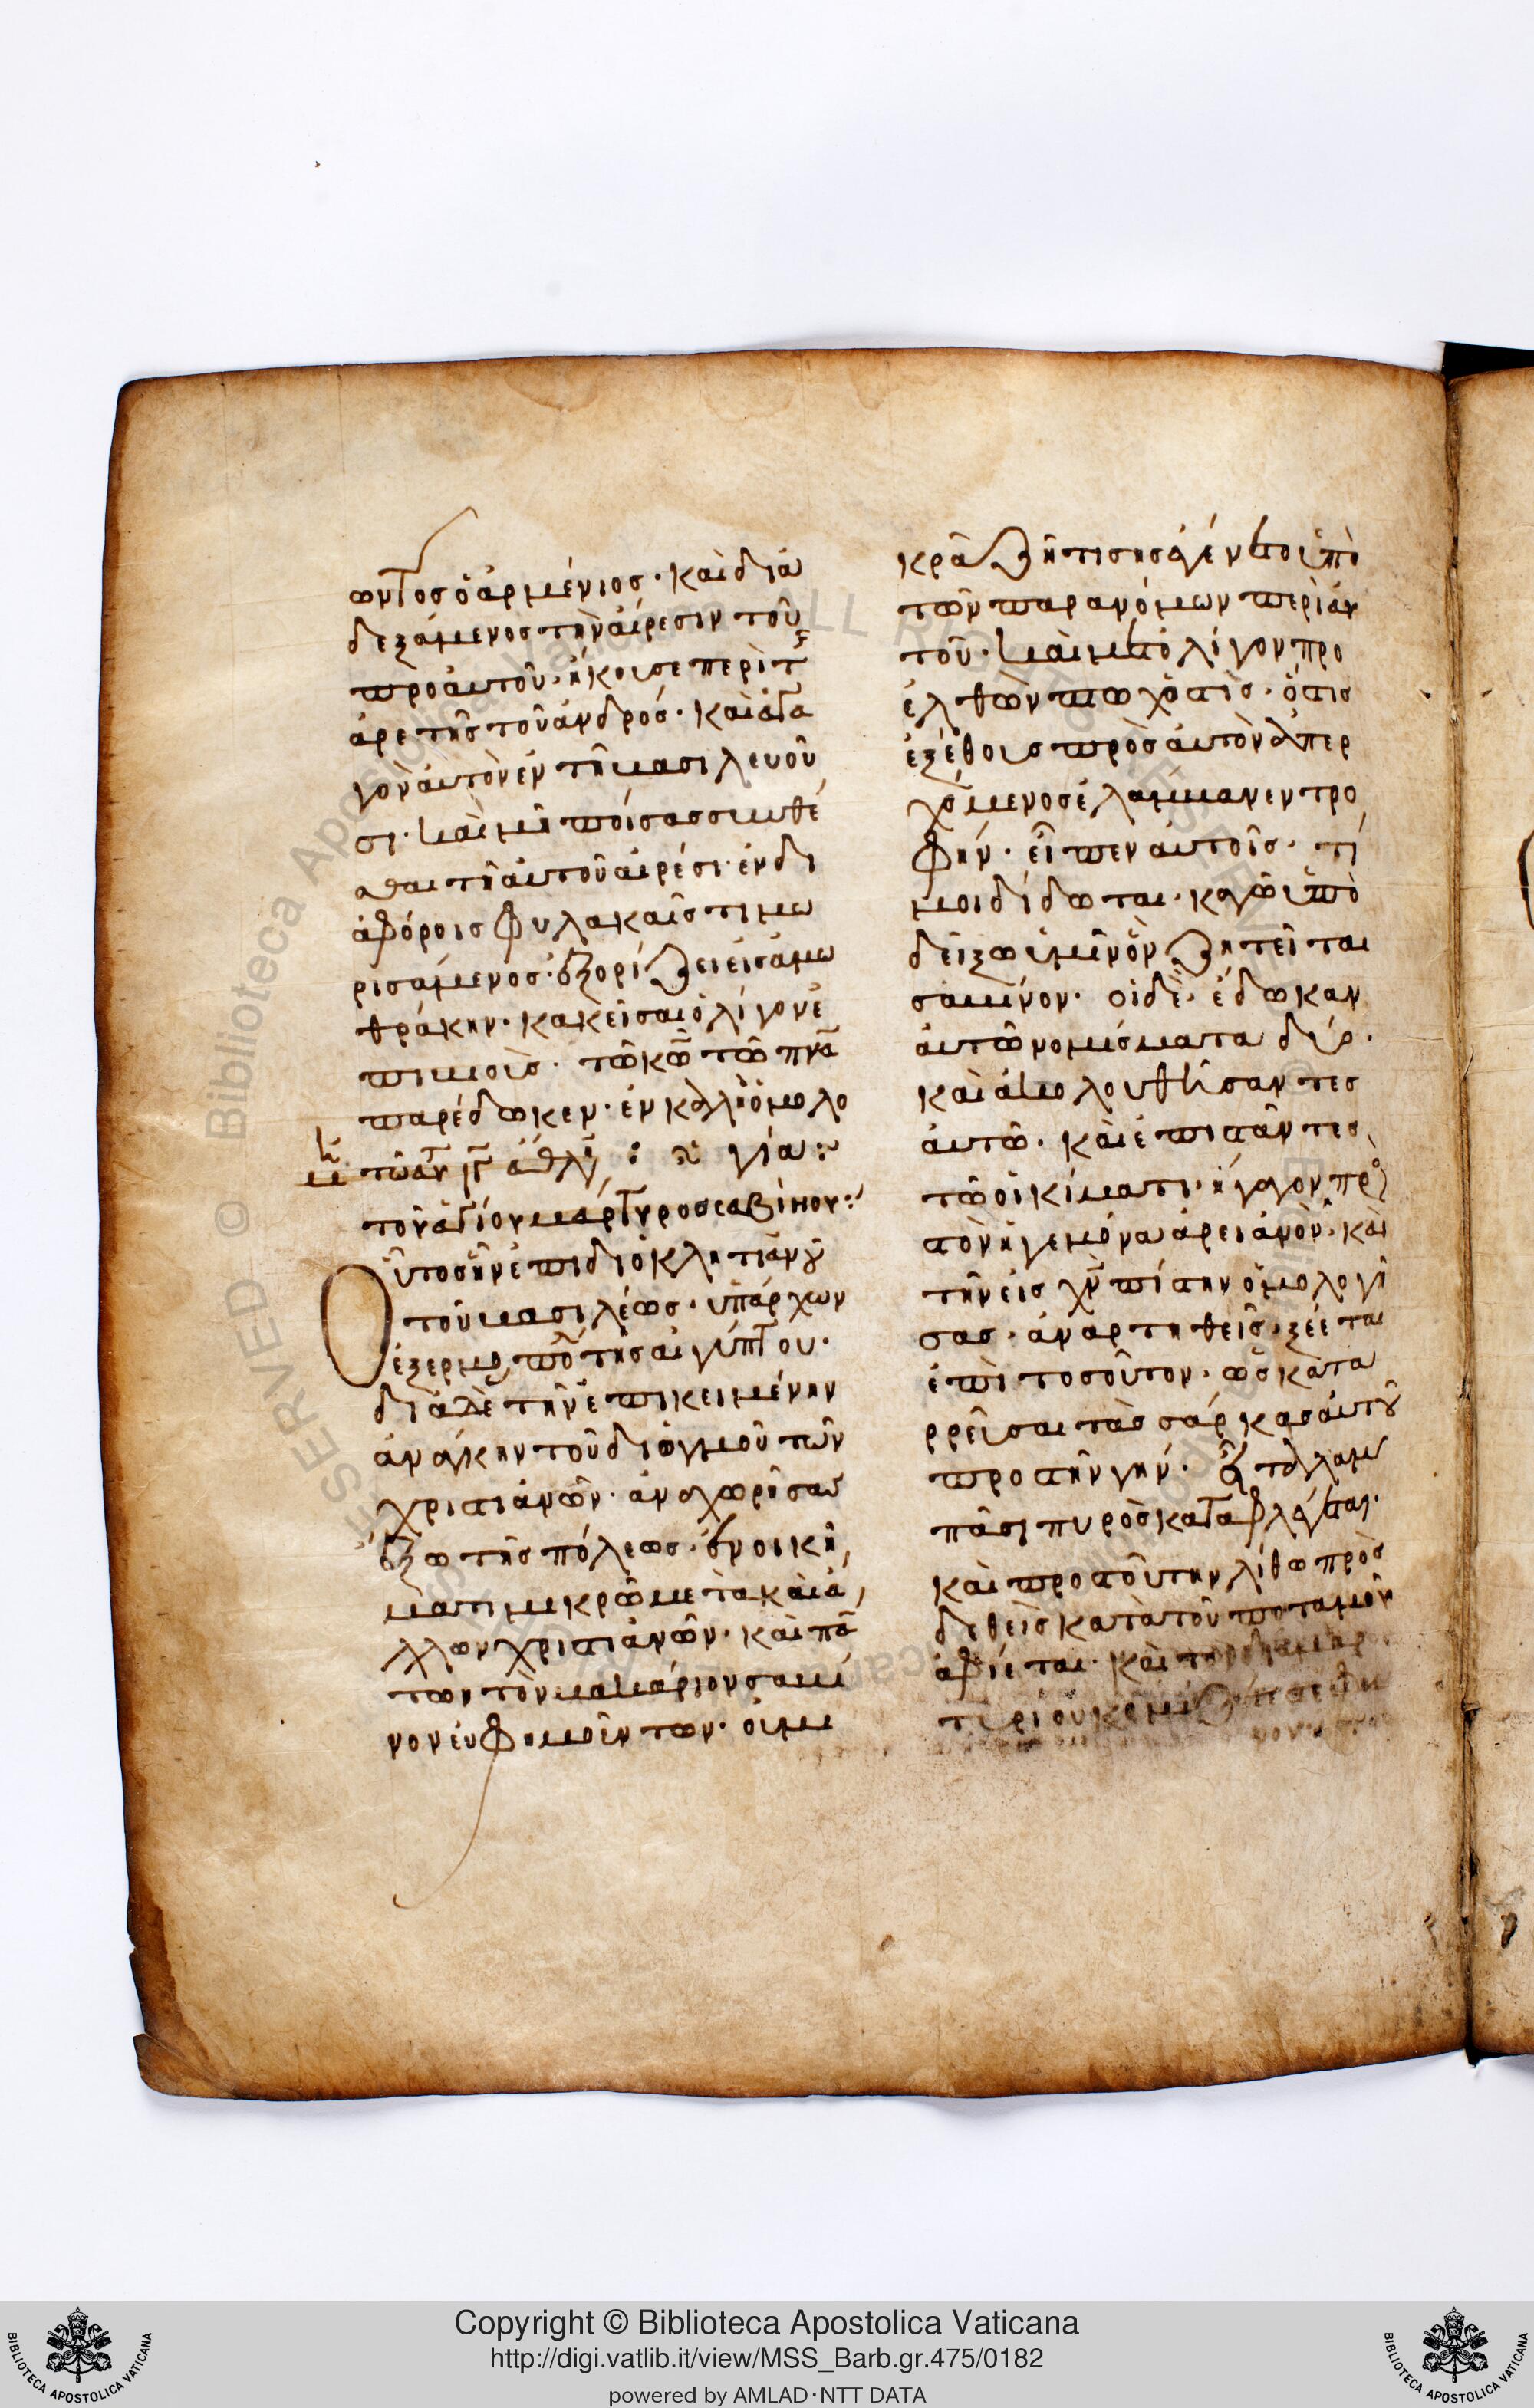 ωντος ὁ ἀρμένιος· καὶ δια
δεξάμενος τὴν ἀίρεσιν τοῦ
προ ἀυτοῦ· ἠκουσε περὶ τ
ἀρετῆς τοῦ ἀνδρός· καὶ ἀγα
γὸν ἀυτὸν ἐν τῆ βασιλευοῦ
ση· καὶ μὴ ποίσας συνθέ
σθαι τῆ ἀυτοῦ αιρέσι· ἐν δι
ἀφόροις φυλακαῖς τιμω
ρισάμενος· ἐξορίζει εἰς ἄμω
θράκην· κακεῖσαι ὀλίγον ἐ
πιβιοὺς· τῶ κῶ τῶ πνᾶ
παρέδωκεν· ἐν καλὴ ὁμολο
γία:
τοῦ ἁγίου μάρτυρος σαβίνου:
Οὗτος ἦν ἐπι διοκλητιανοῦ
τοῦ βασιλέως· ὑπάρχων
ἐξ ερμουπο τῆς αἰγύπτου·
διὰ δὲ τὴν ἐπικειμένην
ἀνάγκην τοῦ διωγμοῦ τῶν
χριστιανῶν· ἀναχωρήσας
ἔξω τῆς πόλεως· ἐν οικῆ
ματι μικρῶ μετα καὶ ἀ
λλων χριστιανῶν· καὶ πά
των τὸν μακάριον σαβῖ
νον ἐυφημοῦντων· οὐ μι
κρᾶ ζήτισης ἐγένετο ὑπὸ
τῶν παρανόμων περὶ ἀυ
τοῦ· καὶ μετ ὀλίγον προ
ελθῶν πτωχὸς τὶς· ὅστις
ἐξ ἔθους πρὸς ἀυτὸν ἀπερ
χόμενος ἐλάμβανεν τρο
φήν· εἶπεν ἀυτοῖς· τί
μοι δίδωται· καγὼ ὑπο
δείξω ὑμῖν ὃν ζητεῖται
σαβῖνον· οἱ δὲ· ἔδωκαν
ἀυτῶ νομίσματα δύο·
καὶ ἀκολουθήσαντες
ἀυτῶ· καὶ ἐπιστᾶντες
τῶ οἰκίματι· ἤγαγον πρὸ
τὸν ἡγεμόνα ἀρειανὸν· καὶ
τὴν εἰς χν πίστην ὁμολογή
σας· ἀναρτηθεῖς· ξέεται
ἐπὶ τοσοῦτον· ὡς κατα
ρρεῦσαι τὰς σάρκας ἀυτοῦ
προς τὴν γήν· εἶτα λαμ
πᾶσι πυρὸς καταφλέγεται·
καὶ προς τοῦτην λίθω προσ
δεθεὶς κατὰ τοῦ ποταμοῦ
ἀφίεται· καὶ
Copyright © Biblioteca Apostolica Vaticana
http://digi.vatlib.it/view/MSS_Barb.gr.475/0182
powered by AMLAD·NTT DATA
BIBLIOTECA APOSTOLICA VATICANA
BIBLIOTECA APOSTOLICA VATICANA